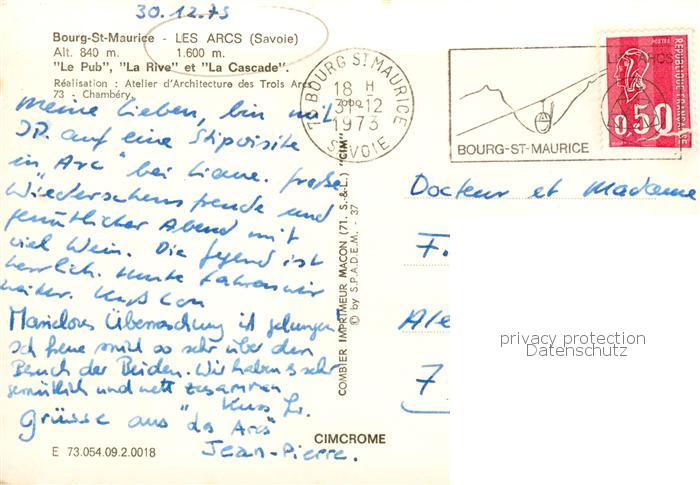 30.12.73
Bourg-St-Maurice - LES ARCS (Savoie)
Alt. 840 m. 1.600 m.
"Le Pub", "La Rive" et "La Cascade".
Réalisation : Atelier d'Architecture des Trois Arcs
73 - Chambéry
meine Lieben, bin mit
JP. auf eine Stipvisite
in "Arc" bei Liane. große
Wiedersehensfreude und
gemütlicher Abend mit
viel Wein. Die Gegend ist
herrlich. Heute fahren wir
weiter. Kuß
Überraschung ist gelungen
ich freue mich so sehr über den
Besuch der Beiden. Wir haben es sehr
gemütlich und nett zusammen
Kuss
Grüsse aus "des Arcs"
Jean-Pierre.
E 73.054.09.2.0018
CIMCROME
COMBIER IMPRIMEUR MACON (71. S.-&-L.) "CIM"
© by S.P.A.D.E.M. - 37
73 BOURG ST MAURICE
18 H
31-12
1973
SAVOIE
LES ARCS
BOURG-ST-MAURICE
REPUBLIQUE FRANÇAISE
0,50
Docteur et Madame
F.
Ale
7
privacy protection
Datenschutz